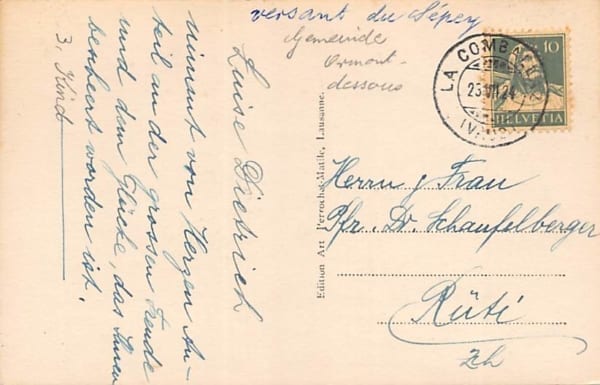 versant du Sépey
Gemeinde
Ormont-
dessous
nimmt von Herzen An-
teil an der grossen Freude
und dem Glücke, das Ihnen
beschert worden ist.
3. Kind
Luise Dietrich
Edition Art Perrochet-Matile, Lausanne.
LA COMBALLAZ
23.VII.24
(VAUD)
10
HELVETIA
Herrn & Frau
Pfr. Dr. Schaufelberger
Rüti
Zh